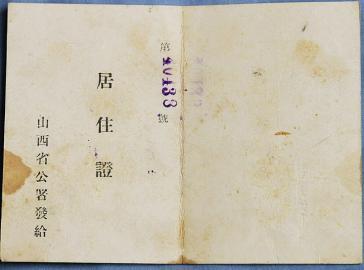 第40133號
居住證
山西省公署發給